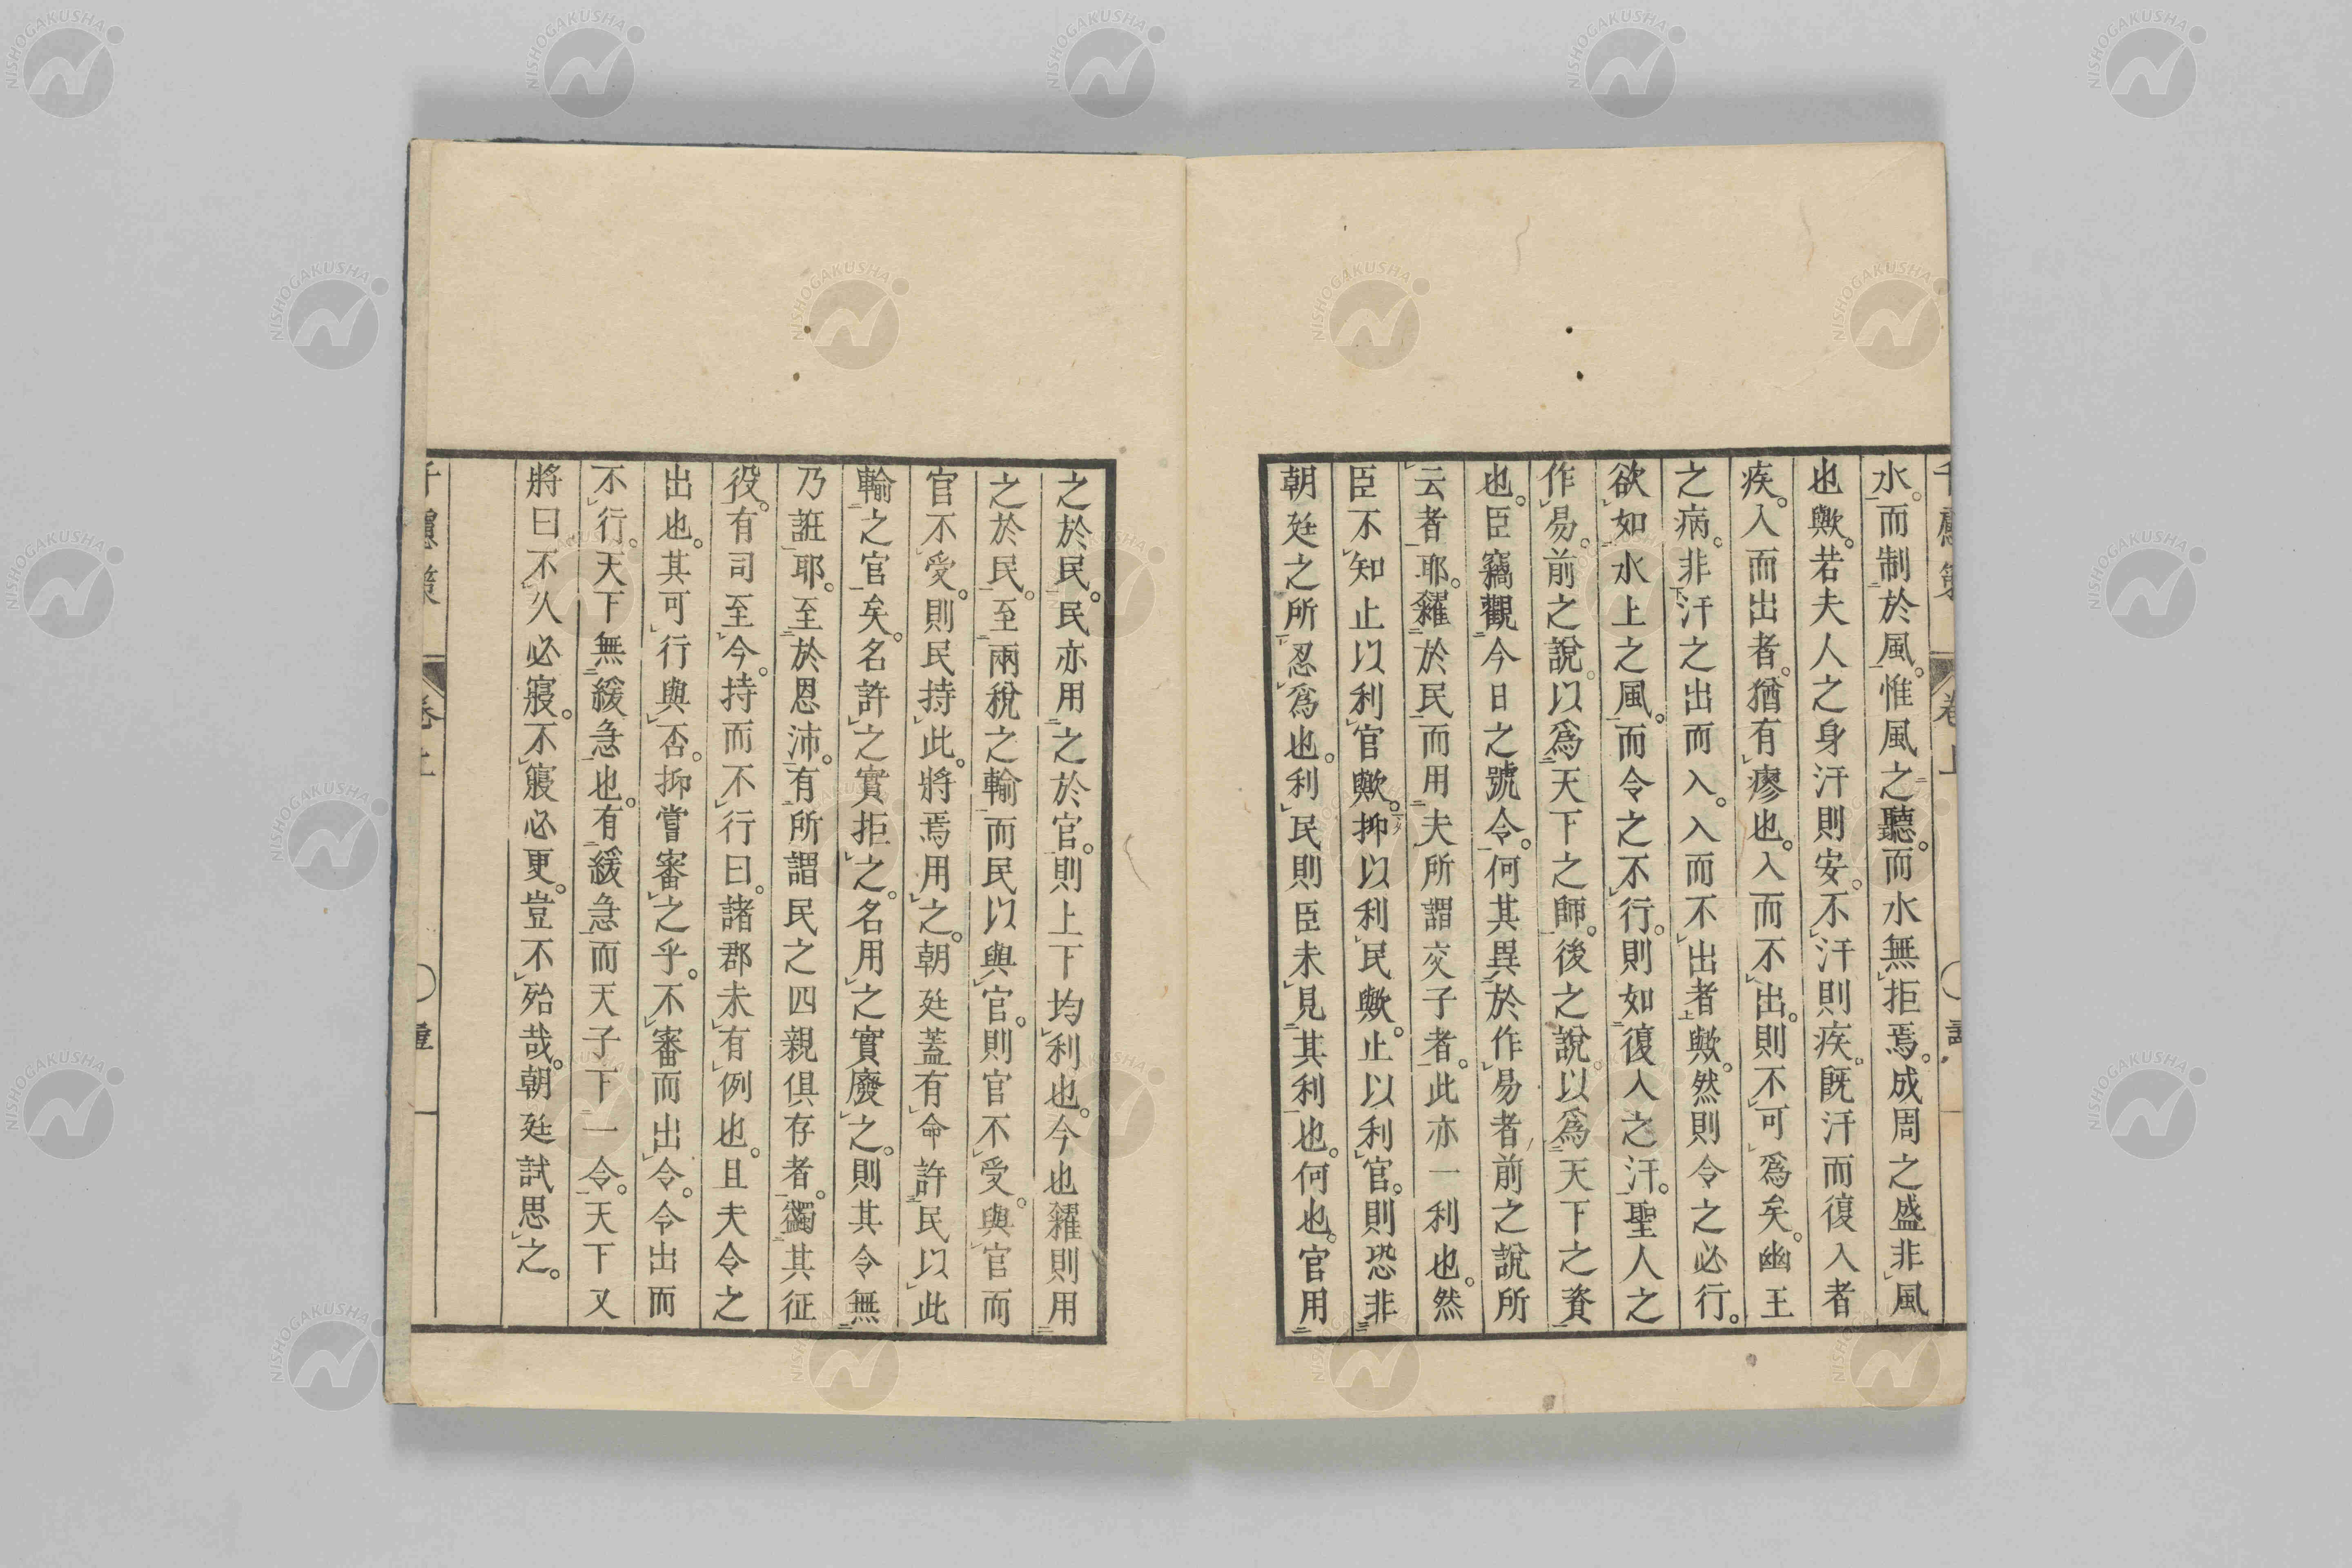 水。而制於風。惟風之聽。而水無拒焉。成周之盛非風
也歟。若夫人之身汗則安。不汗則疾。既汗而復入者
疾。入而出者。猶有瘳也。入而不出。則不可為矣。幽王
之病。非汗之出而入。入而不出者歟。然則令之必行。
欲如水上之風。而令之不行。則如復入之汗。聖人之
作易。前之說。以為天下之師。後之說以為天下之資
也。臣竊觀今日之號令。何其異於作易者前之說所
云者耶。糴於民而用夫所謂交子者。此亦一利也。然
臣不知止以利官歟。抑以利民歟。止以利官。則恐非
朝廷之所忍為也。利民則臣未見其利也。何也。官用
之於民。民亦用之於官。則上下均利也。今也糴則用
之於民。至兩稅之輸而民以與官。則官不受。與官而
官不受。則民持此。將焉用之。朝廷蓋有命許民以此
輸之官矣。名許之實拒之。名用之實廢之。則其令無
乃誑耶。至於恩沛。有所謂民之四親俱存者。蠲其征
役。有司至今。持而不行曰。諸郡未有例也。且夫令之
出也。其可行與否。抑嘗審之乎。不審而出令。令出而
不行。天下無緩急也。有緩急而天子下一令。天下又
將曰不久必寢。不寢必更。豈不殆哉。朝廷試思之。
NISHOGAKUSHA